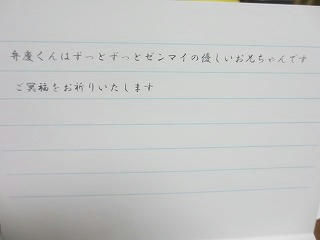 弁慶くんはずっとずっとゼンマイの優しいお兄ちゃんです
ご冥福をお祈りいたします